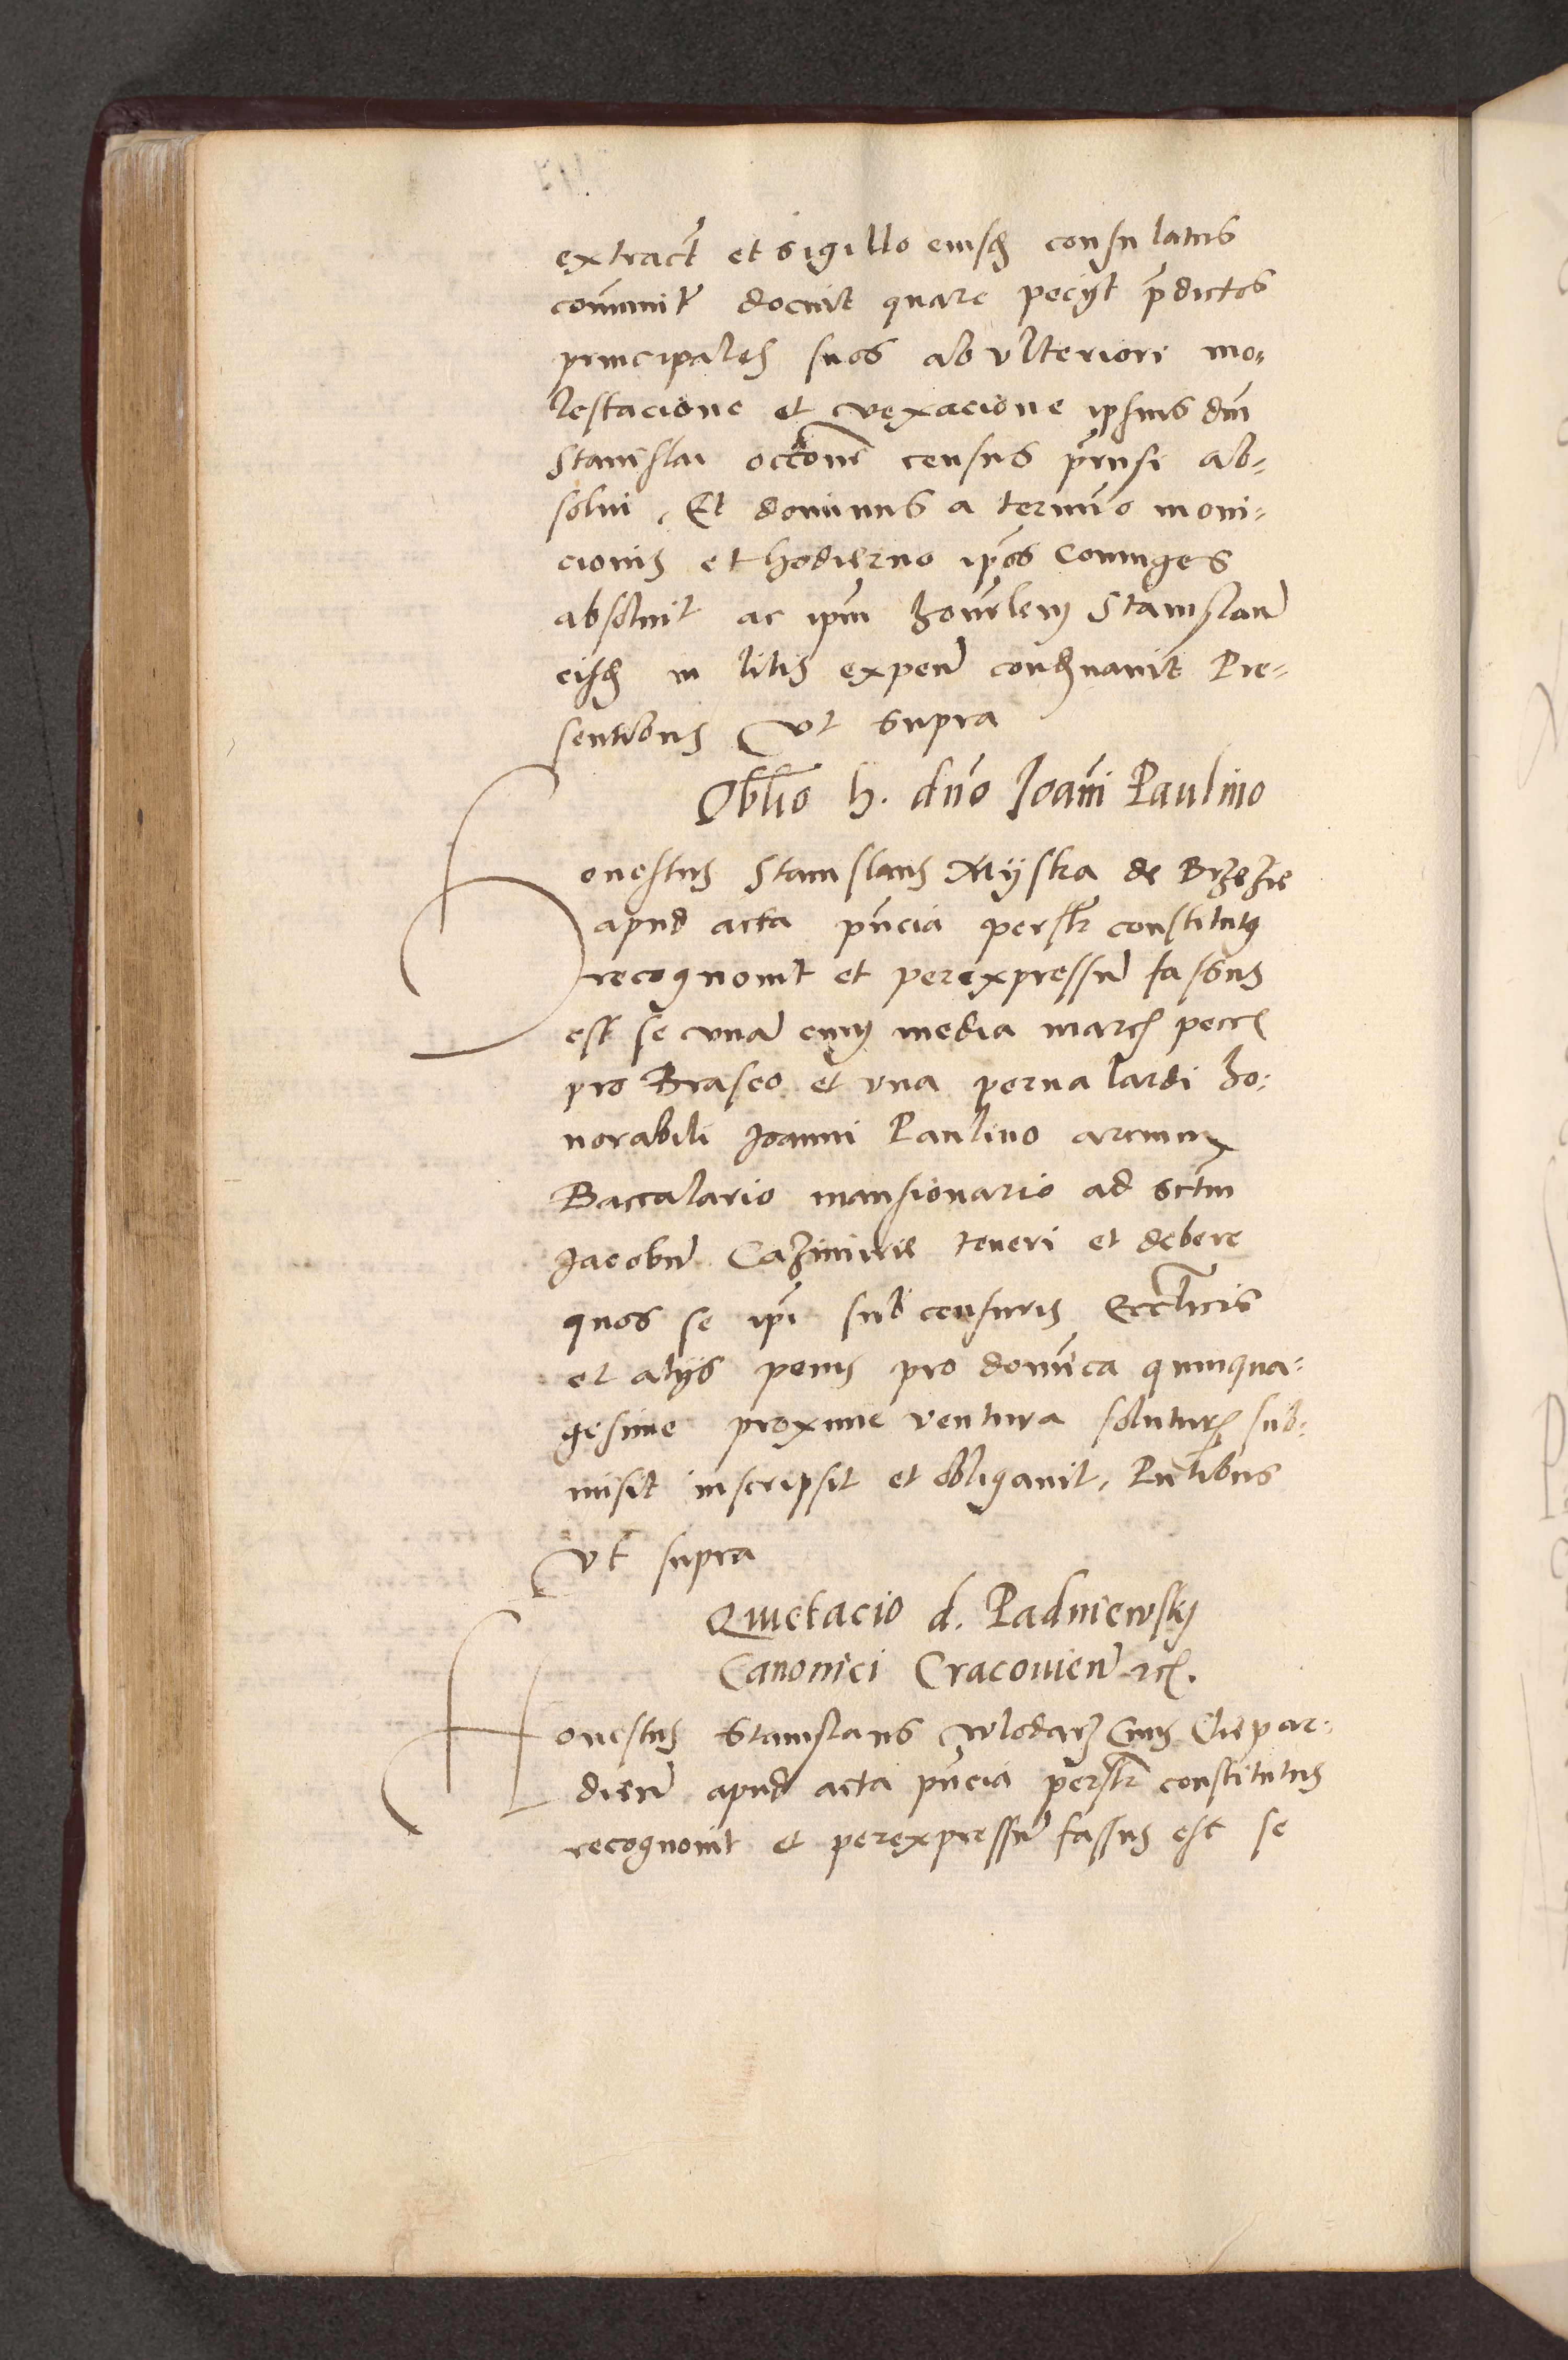 extract et sigillo eiusd consulatus
communit docuit quare peciyt pdictos
principales suos ab ulteriori mo-
lestacione et vexacione ipsius dni
Stanislai occone census pmisi ab-
solui. Et dominus a termino moni-
cionis et hodierno ipos Coniuges
absoluit ac ipm honorlem Stanislaum
eisd in litis expen condemnauit Pre-
sentibus Vt supra
Oblio h. dno Joanni Paulino
Honestus Stanislaus Myska de Brzezie
apud acta pncia persltr constitutus
recognouit et per expressum fassus
est se vnam cum media marcas pecc
pro Braseo et vna perna lardi ho-
norabili Joanni Paulino arcium
Baccalario mansionario ad sctm
Jacobum Cazimirie teneri et debere
quos se ipi sub censuris Ecclticis
et alys penis pro dominica quinqua-
gesime proxime ventura soluturum sub-
misit inscripsit et obligauit, Pntibus
Vt supra
Quietacio d. Padniewsky
Canonici Cracouien etc.
Honestus Stanislaus Wlodarz Ciuis Clepar-
dien apud acta pncia persltr constitutus
recognouit et per expressum fassus est se